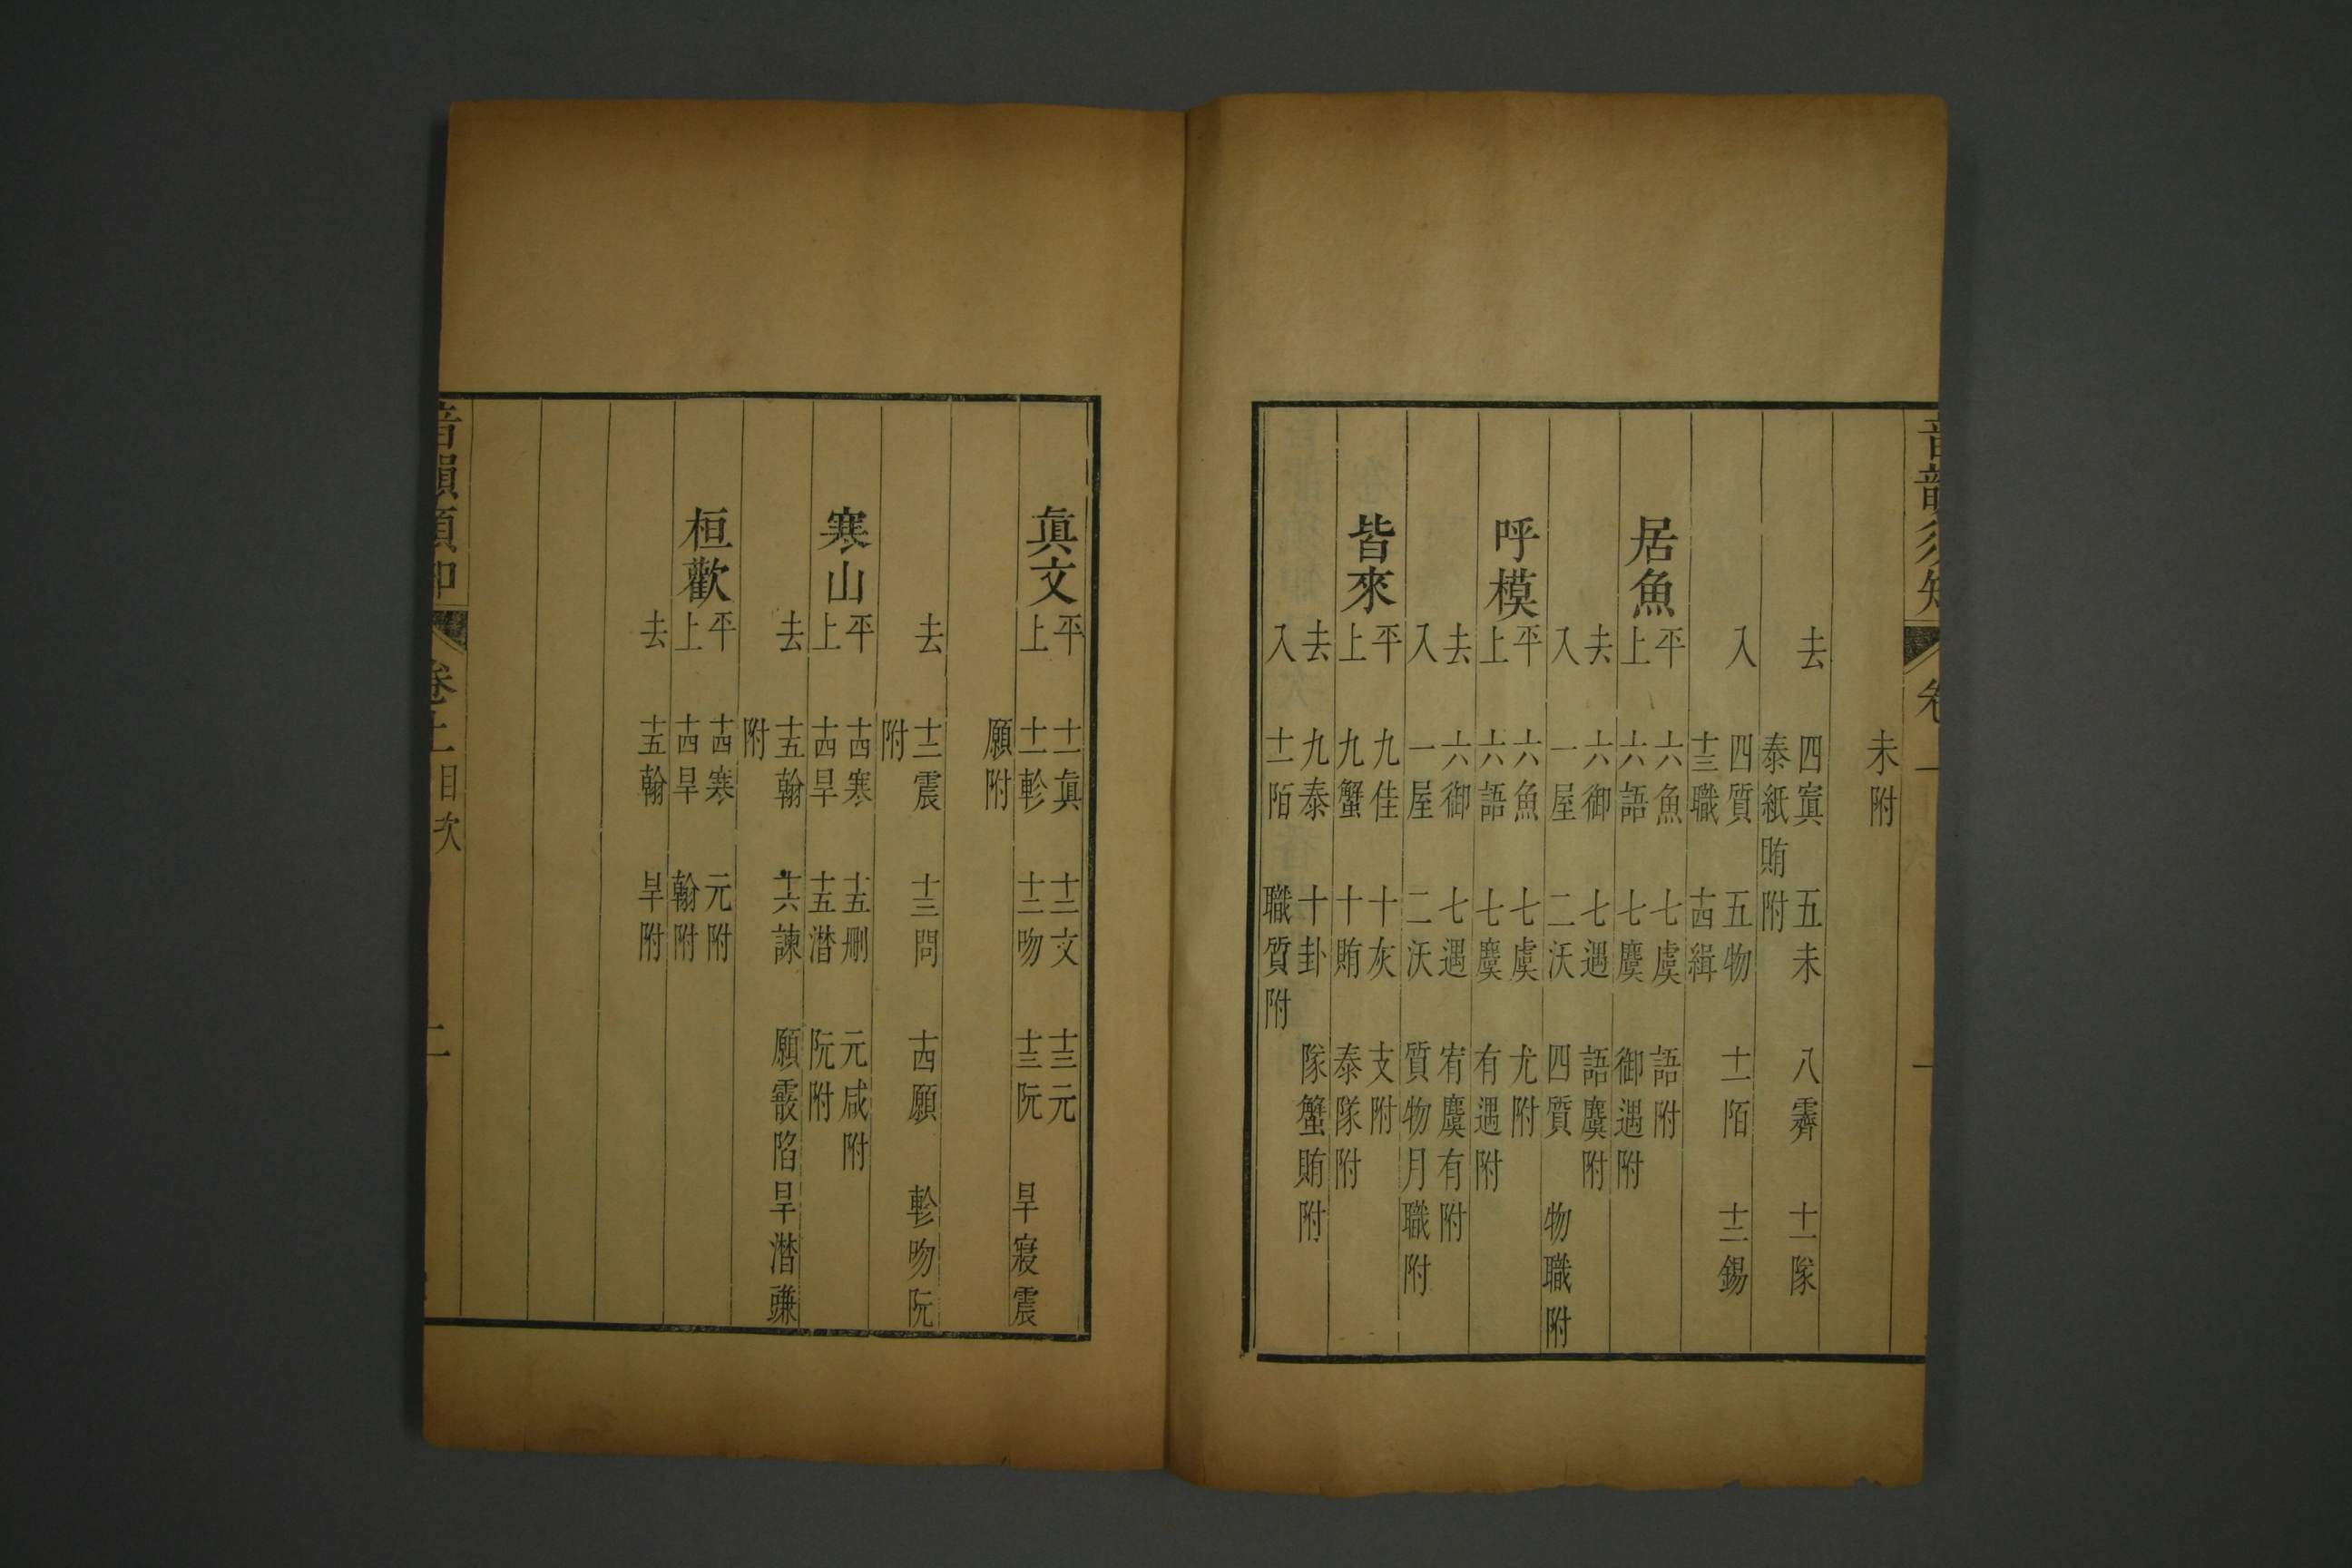 音韻須知
卷
未附
去 四寘 五未 八霽 十一隊
泰紙賄附
入 四質 五物 十一陌 十二錫
十三職 十四緝
居魚
平 六魚 七虞 語附
上 六語 七麌 御遇附
去 六御 七遇 語麌附
入 一屋 二沃 四質 物職附
呼模
平 六魚 七虞 尤附
上 六語 七麌 有遇附
去 六御 七遇 宥麌有附
入 一屋 二沃 質物月職附
皆來
平 九佳 十灰 支附
上 九蟹 十賄 泰隊附
去 九泰 十卦 隊蟹賄附
入 十一陌 職質附
眞文
平 十一眞 十二文 十三元
上 十一軫 十二吻 十三阮 旱寢震
願附
去 十二震 十三問 十四願 軫吻阮
附
寒山
平 十四寒 十五刪 元咸附
上 十四旱 十五潸 阮附
去 十五翰 十六諫 願霰陷旱潸豏
附
桓歡
平 十四寒 元附
上 十四旱 翰附
去 十五翰 旱附
音韻須知
卷上目次
二